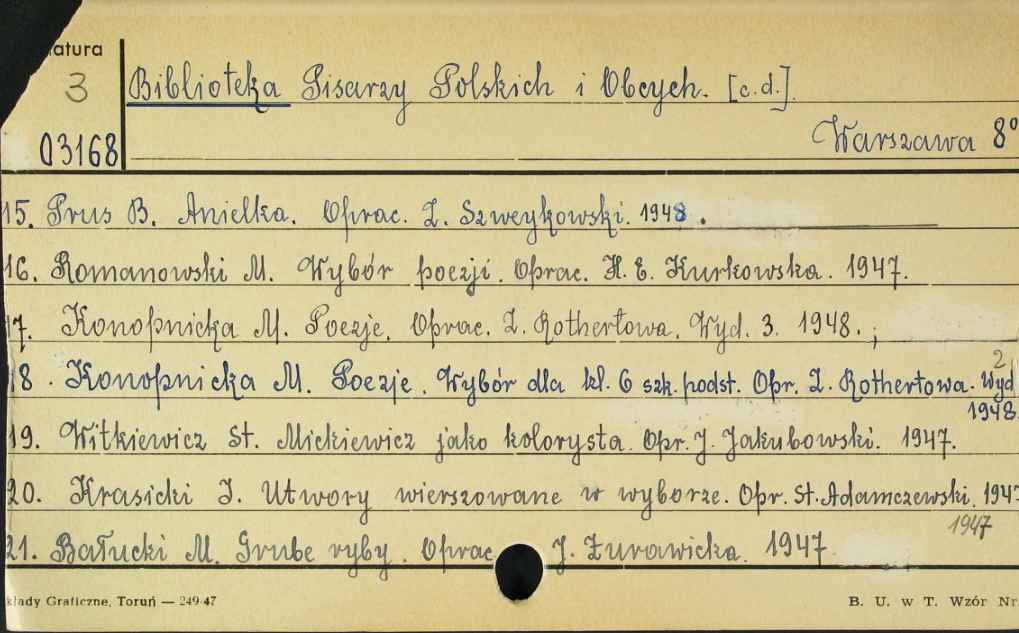 atura
3
Biblioteka Pisarzy Polskich i Obcych. [c.d.].
Warszawa 8°
03168
15. Prus B. Anielka. Oprac. Z. Szweykowski. 1948.
16. Romanowski M. Wybór poezji. Oprac. H. E. Kurkowska. 1947.
17. Konopnicka M. Poezje. Oprac. Z. Rothertowa. Wyd. 3. 1948.;
18. Konopnicka M. Poezje. Wybór dla kl. 6 szk. podst. Opr. Z. Rothertowa. Wyd 2
1948.
19. Witkiewicz St. Mickiewicz jako kolorysta. Opr. J. Jakubowski. 1947.
20. Krasicki I. Utwory wierszowane w wyborze. Opr. St. Adamczewski. 1947
1947
21. Bałucki M. Grube ryby. Oprac. J. Żurawicka. 1947
kłady Graficzne, Toruń — 249-47
B. U. w T. Wzór Nr